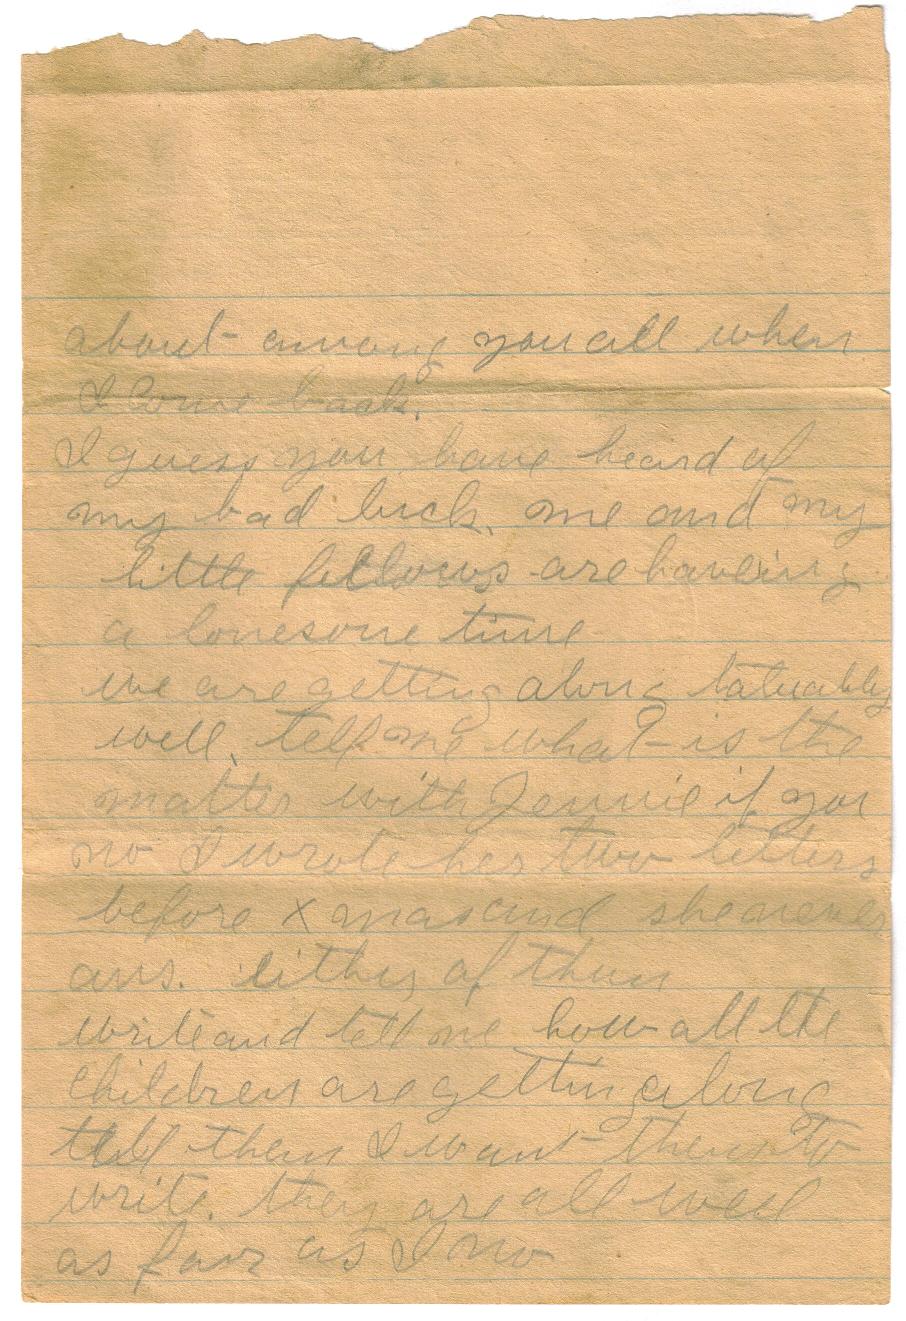 about among you all when
I Come back.
I guess you have heard of
my bad luck. me and my
little fellows are haveing
a lonesome time
we are getting along
well. tell me what is the
matter with Jennie if you
no I wrote her two letters
before xmas and she never
ans. either of them
write and tell me how all the
children are getting along
tell them I want them to
write. they are all well
as far as I no